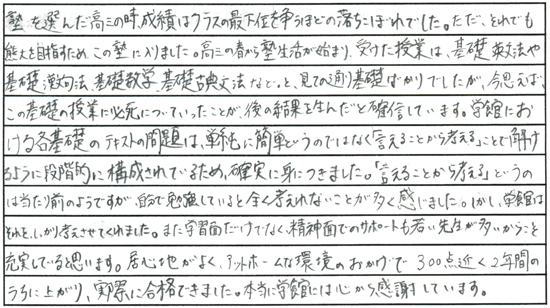 塾を選んだ高三の時成績はクラスの最下位を争うほどの落ちこぼれでした。ただ、それでも
熊大を目指すため、この塾に入りました。高三の春から塾生活が始まり、受けた授業は、基礎英文法や
基礎漢文句法、基礎数学、基礎古典文法など。と、見ての通り基礎ばかりでしたが、今思えば、
この基礎の授業に必死についていったことが、後の結果を生んだと確信しています。学館にお
ける各基礎のテキストの問題は、単純に簡単というのではなく「言えることから考える」ことで解け
るように段階的に構成されているため、確実に身につきました。「言えることから考える」というの
は当たり前のようですが、自分で勉強していると全く考えれないことが多く感じました。しかし、学館は
それを、しっかり考えさせてくれました。また学習面だけでなく、精神面でのサポートも若い先生が多いから
充実していると思います。居心地がよく、アットホームな環境のおかげで300点近く2年間の
うちに上がり、実際に合格できました。本当に学館には心から感謝しています。